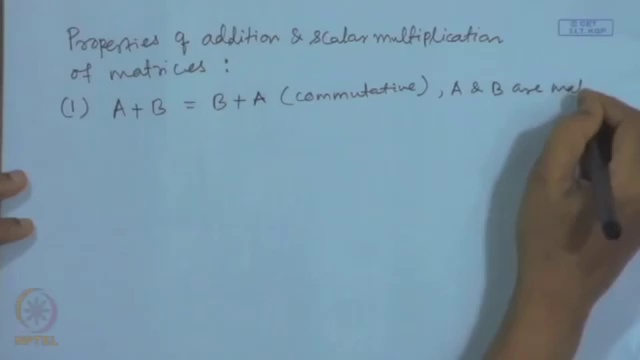 Properties of addition & scalar multiplication
of matrices :
(1) A + B = B + A (commutative), A & B are mat
© CET
I.I.T. KGP
NPTEL